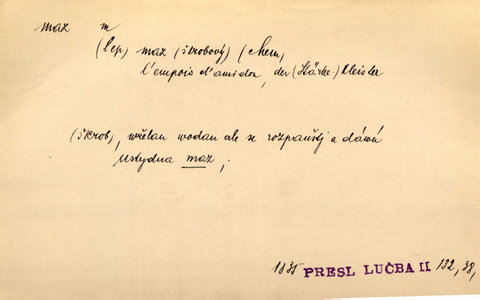 maz m
(lep) maz (škrobový) (chem,
l'empois d'amidon, der (Stärke-) Kleister
(škrob), wřelau wodau ale se rozpauští a dává
ustydna maz;
1835 PRESL LUČBA II 132, 38,